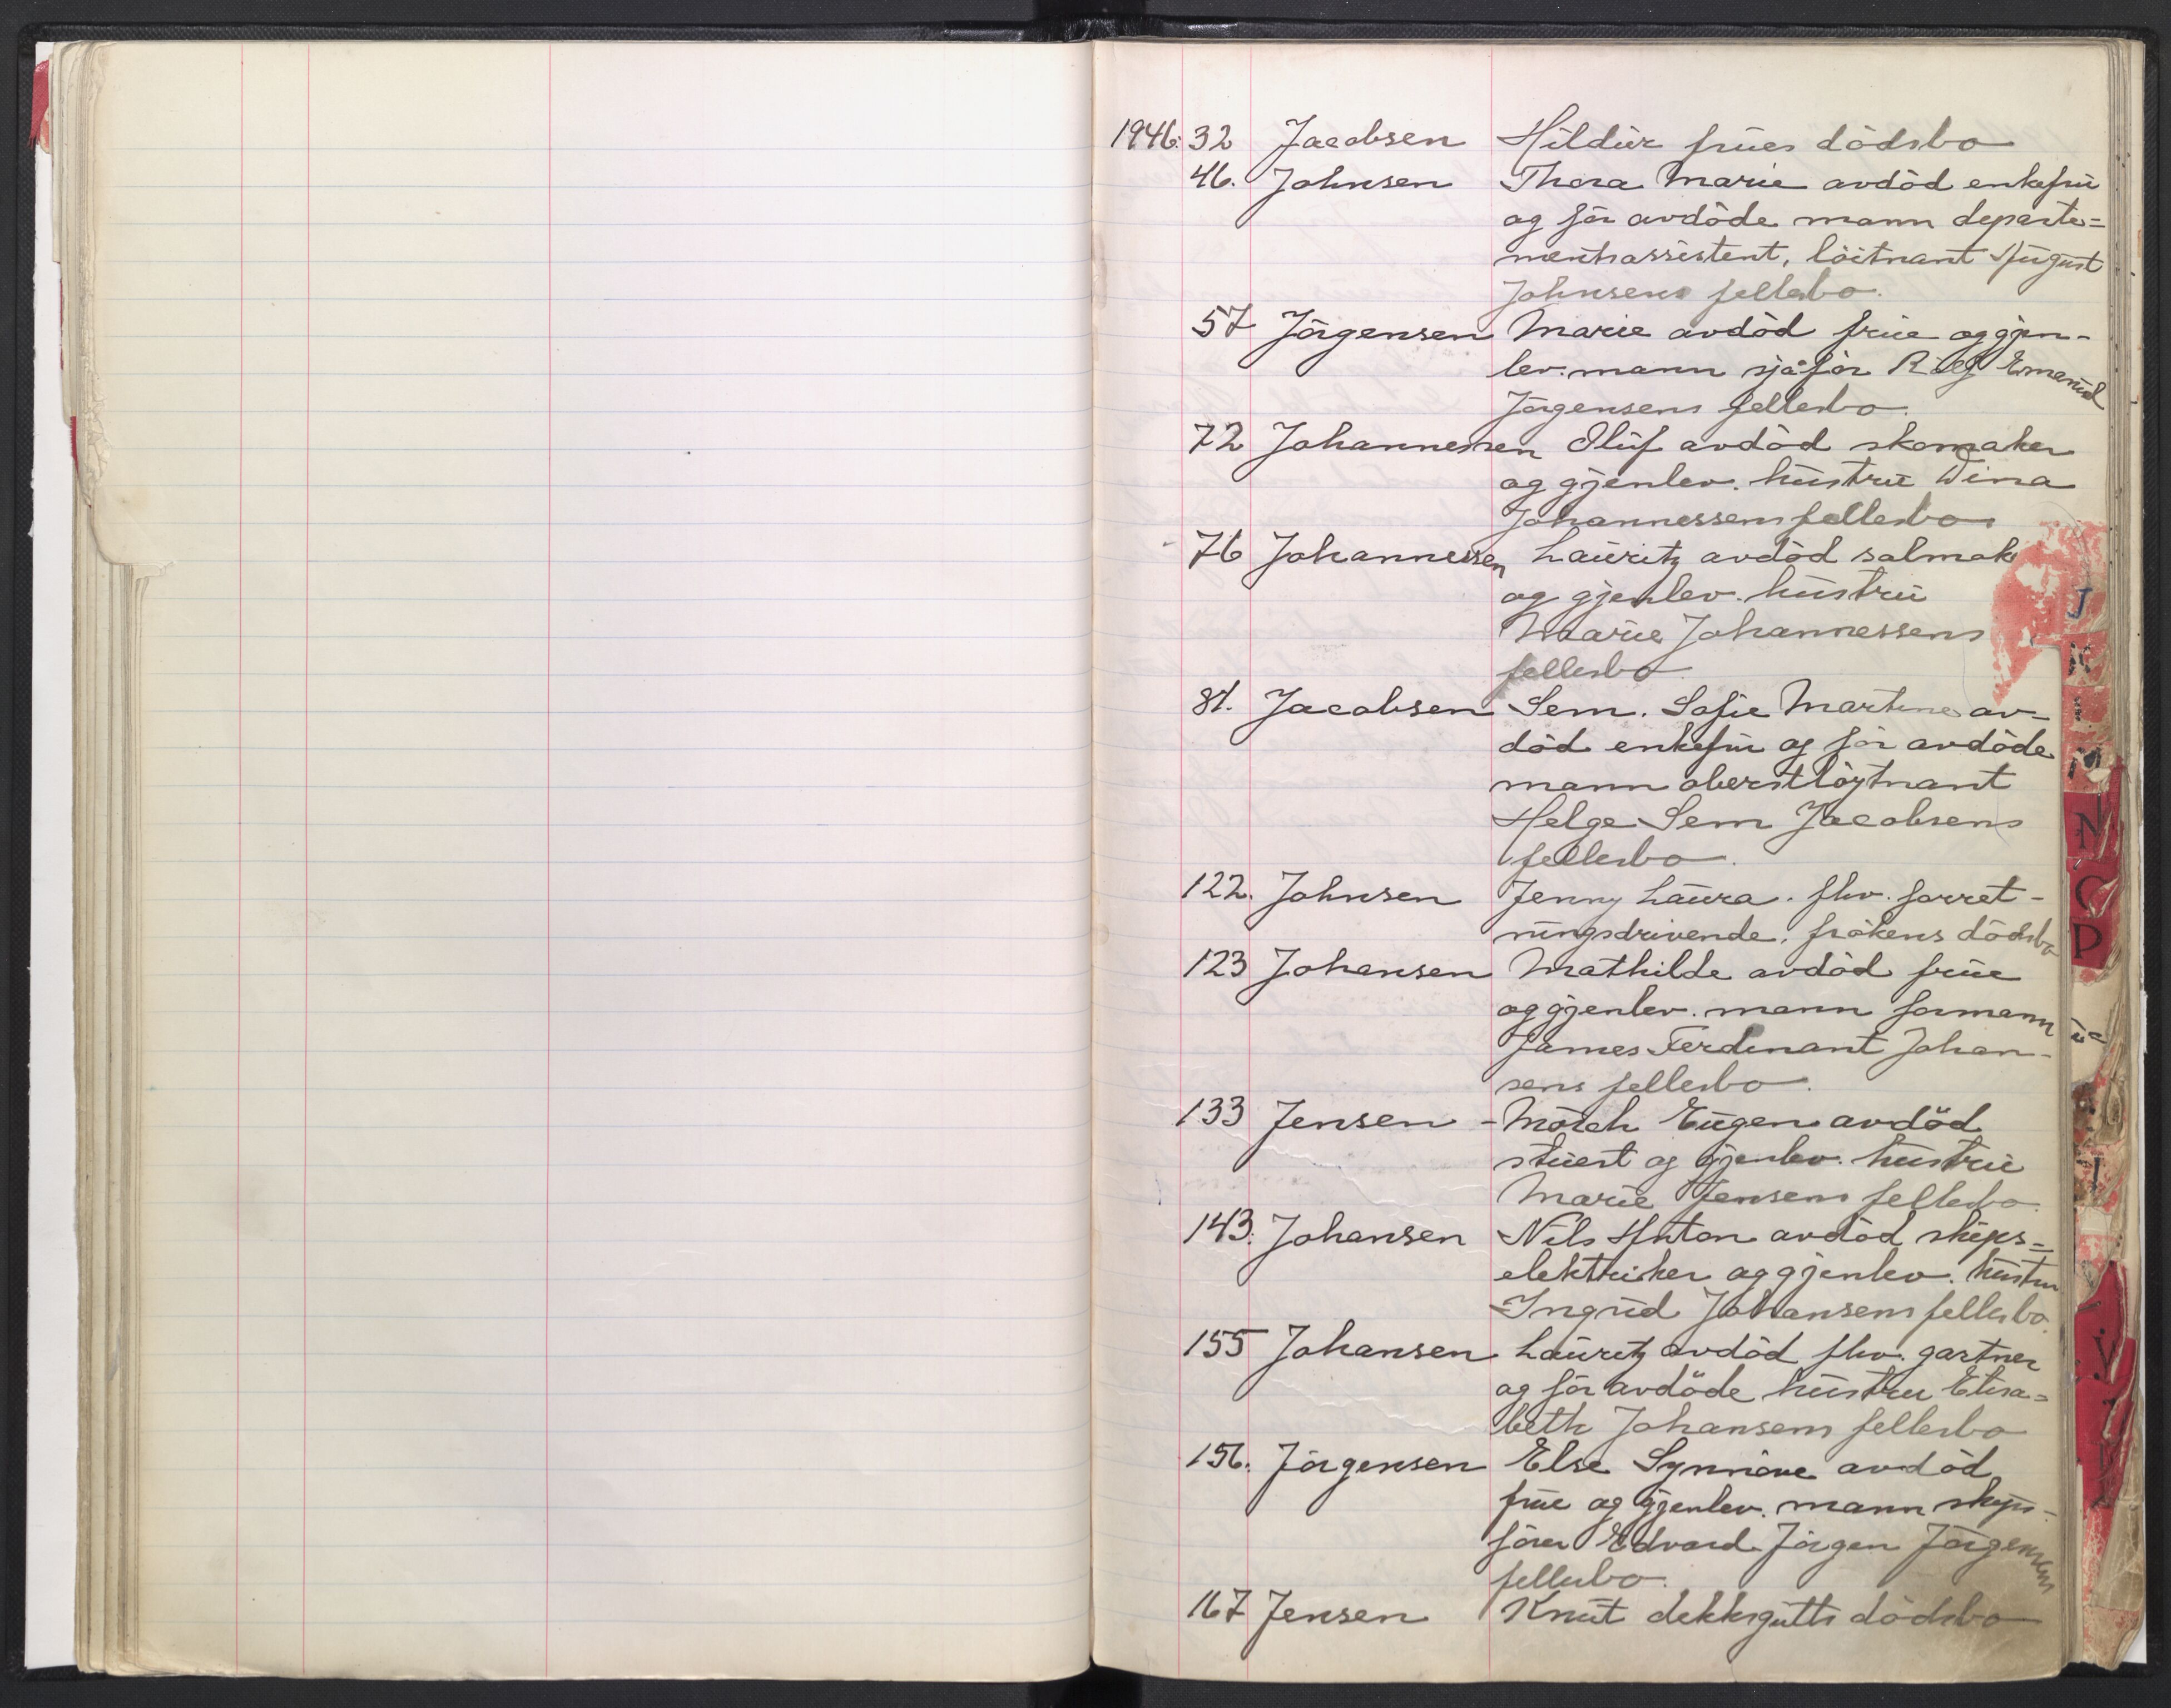 1946: 32 Jacobsen Hildur frues dödsbo
46. Johnsen Thora Marie avdöd enkefru
og för avdöde mann departe=
mentsassistent, löitnant August
Johnsens fellesbo.
57 Jörgensen Marie avdöd frue og gjen-
lev. mann sjåför Rolf Emanuel
Jörgensens fellesbo.
72 Johannessen Oluf avdöd skomaker
og gjenlev. hustru Dina
Johannessens fellesbo
76 Johannessen Lauritz avdöd salmak
og gjenlev. hustru
Marie Johannessens
fellesbo
81. Jacobsen Sem. Sofie Martine av-
död enkefru og för avdöde
mann oberstlöytnant
Helge Sem Jacobsens
fellesbo.
122. Johnsen Jenny Laura. fhv. forret-
ningsdrivende, frökens dödsbo
123 Johansen Mathilde avdöd frue
og gjenlev. mann formann
James Ferdinant Johan-
sens fellesbo.
133 Jensen - Mörch Eugen avdöd
stuert og gjenlev. hustru
Marie Jensens fellesbo.
143. Johansen Nils Anton avdöd skips=
elektriker og gjenlev. hustru
Ingrid Johansens fellesbo.
155 Johansen Lauritz avdöd fhv. gartner
og för avdöde hustru Elisa=
beth Johansens fellesbo
156. Jörgensen Else Synnöve avdöd
frue og gjenlev. mann skips-
förer Edvard Jörgen Jörgensens
fellesbo.
167 Jensen Knut dekksgutts dödsbo
J
K
L
M
N
O
P
V